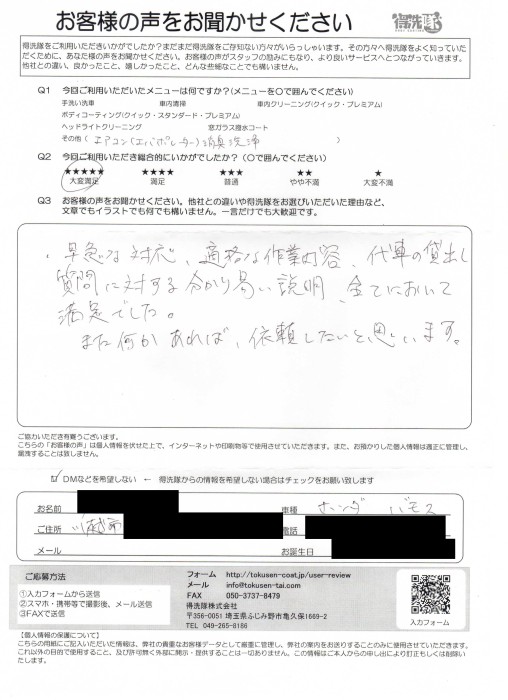 お客様の声をお聞かせください
得洗隊
得洗隊をご利用いただきいかがでしたか？まだまだ得洗隊をご存知ない方々がいらっしゃいます。その方々へ得洗隊をよく知っていた
だくために、あなた様の声をお聞かせください。お客様の声がスタッフの励みにもなり、より良いサービスへとつながっていきます。
他社との違い、良かったこと、嬉しかったこと、どんな些細なことでも構いません。
Q1 今回ご利用いただいたメニューは何ですか？（メニューを○で囲んでください）
手洗い洗車 車内清掃 車内クリーニング（クイック・プレミアム）
ボディコーティング（クイック・スタンダード・プレミアム）
ヘッドライトクリーニング 窓ガラス撥水コート
その他（エアコン（エバポレーター）消臭洗浄 ）
Q2 今回ご利用いただき総合的にいかがでしたか？（○で囲んでください）
★★★★★ ★★★★ ★★★ ★★ ★
大変満足 満足 普通 やや不満 大変不満
Q3 お客様の声をお聞かせください。他社との違いや得洗隊をお選びいただいた理由など、
文章でもイラストでも何でも構いません。一言だけでも大歓迎です。
・早急な対応、適格な作業内容、代車の貸出し
質問に対する分かり易い説明、全てにおいて
満足でした。
また何かあれば、依頼したいと思います。
ご協力いただき有難うございます。
こちらの「お客様の声」は個人情報を伏せた上で、インターネットや印刷物等で使用させていただきます。また、お預かりした個人情報は適正に管理し、
漏洩することは致しません。
DMなどを希望しない ← 得洗隊からの情報を希望しない場合はチェックをお願い致します
お名前 車種 ホンダ バモス
ご住所 川越市 電話
メール お誕生日
ご応募方法
①入力フォームから送信
②スマホ・携帯等で撮影後、メール送信
③FAXで送信
フォーム http://tokusen-coat.jp/user-review
メール info@tokusen-tai.com
FAX 050-3737-8479
得洗隊株式会社
〒356-0051 埼玉県ふじみ野市亀久保1669-2
TEL 049-265-8186
入力フォーム
【個人情報の保護について】
こちらの用紙にご記入いただいた情報は、弊社の貴重なお客様データとして厳重に管理し、弊社の案内をお送りすることのみに使用させていただきます。
これ以外の目的で使用すること、及び許可無く外部に開示・提供することは一切ありません。この情報はご本人からの申し出により訂正もしくは削除い
たします。